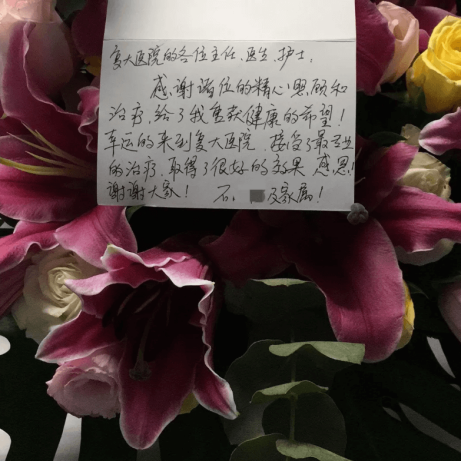 复大医院的各位主任、医生、护士：
感谢诸位的精心照顾和
治疗，给了我重获健康的希望！
幸运的来到复大医院，接受了最专业
的治疗，取得了很好的效果 感恩！
谢谢大家！ 石 及家属！